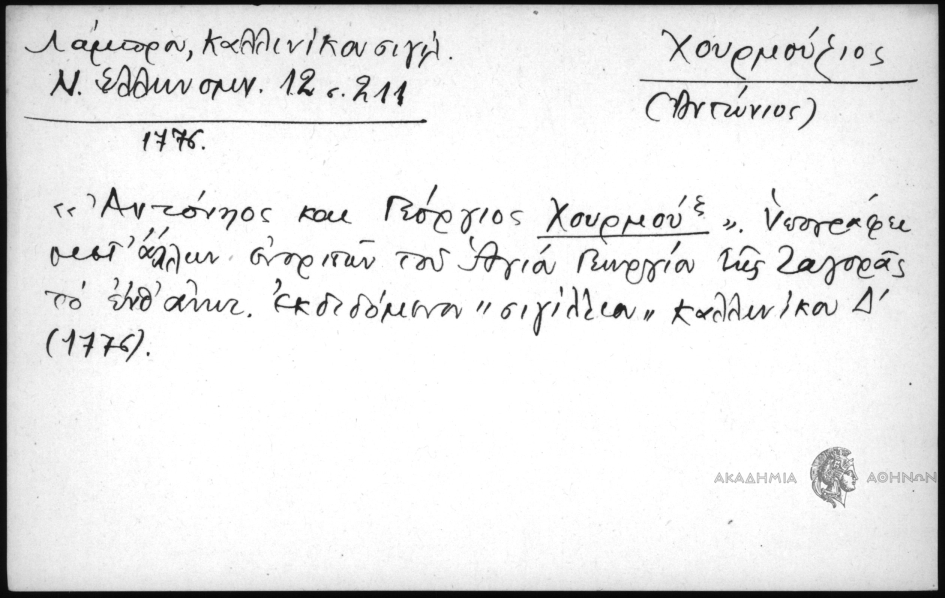 Λάμπρου, Καλλινίκου σιγίλ.
Ν. Ἑλλην ομν. 12 σ. 211
1776.
Χουρμούζιος
(Ἀντώνιος)
«Ἀντόνιος και Γεόργιος Χουρμούξ». Ὑπογράφει
μετ' ἄλλων τοῦ Ἁγίου Γεωργίου τῆς Ζαγορᾶς
τό ἐκδιδόμενον "σιγίλλιον" Καλλινίκου Δ'
(1776).
ΑΚΑΔΗΜΙΑ ΑΘΗΝΩΝ